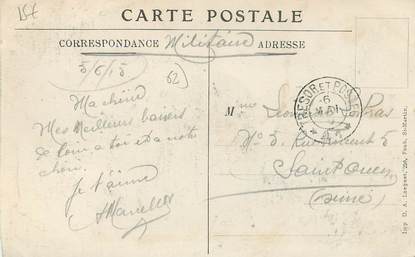 CARTE POSTALE
CORRESPONDANCE Militaire ADRESSE
5/5/15
Ma chérie
Mes Meilleurs baisers
de loin a toi et a notre
Je t'aime
Marcel
TRESOR ET POSTES
6
MAI
Mme
No 5 Rue Vincent 5
Saint Ouen
(Seine)
Imp. D. A. Longuet, 250, Faub. St-Martin.